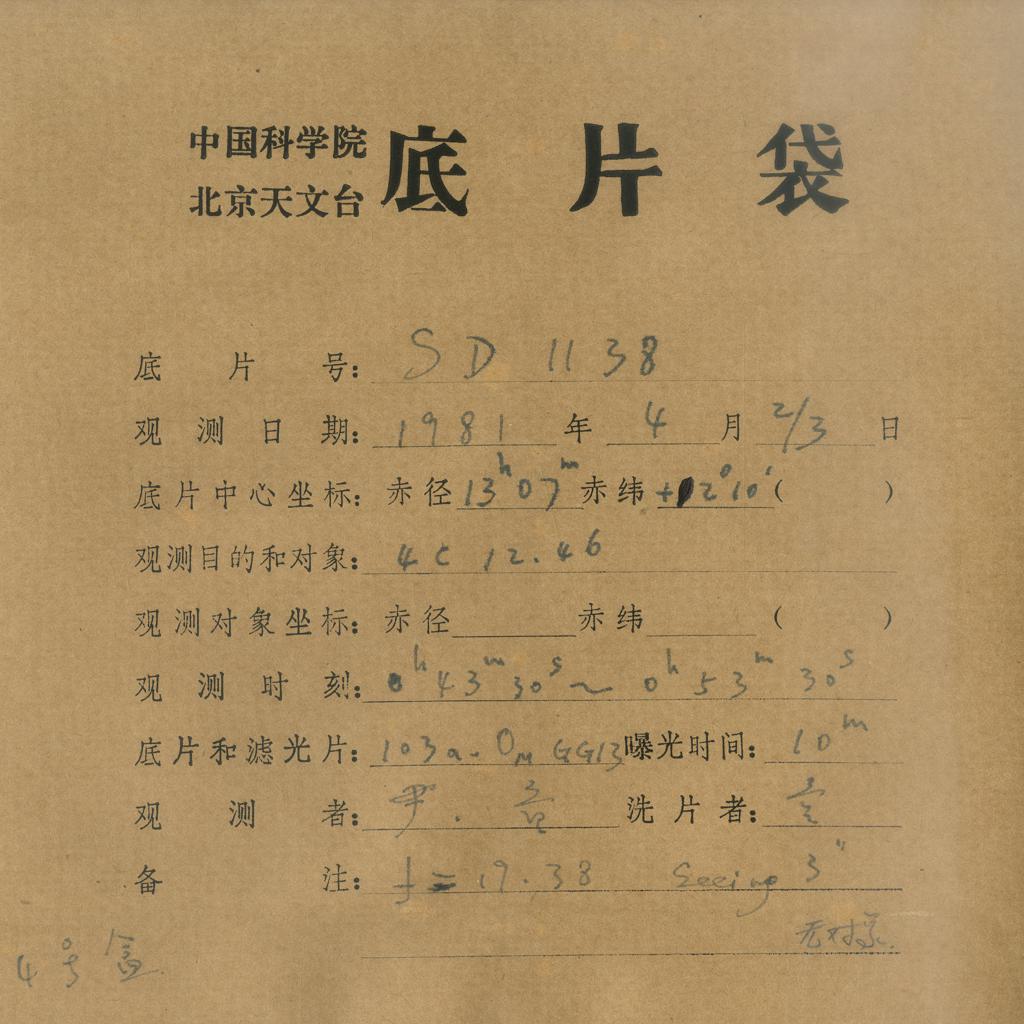 中国科学院
北京天文台
底片袋
底片号: SD 1138
观测日期: 1981 年 4 月 2/3 日
底片中心坐标: 赤径 13h07m 赤纬 +12°10′ ( )
观测目的和对象: 4C 12.46
观测对象坐标: 赤径 赤纬 ( )
观测时刻: 0h 43m 30s ~ 0h 53m 30s
底片和滤光片: 103a-O GG13 曝光时间: 10m
观测者: 洗片者:
备注: f = 19.38 Seeing 3″
无对象
4号盒